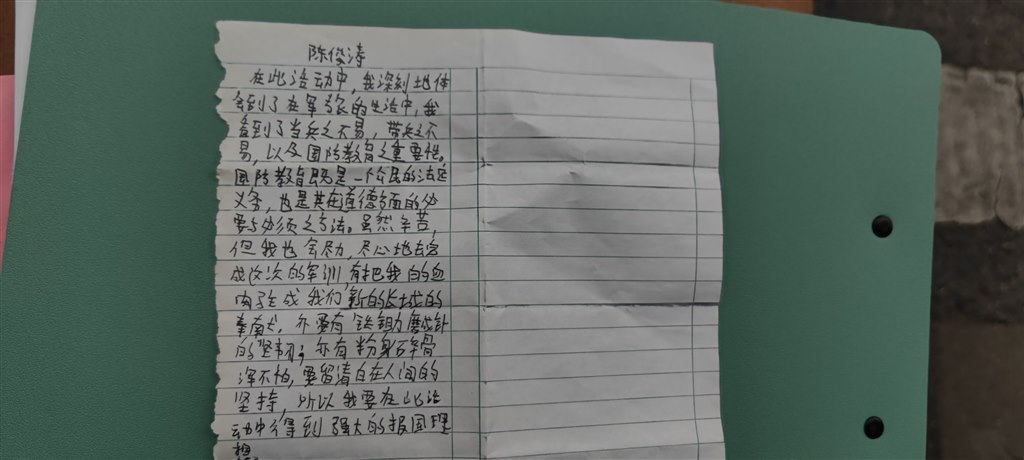 陈俊涛
在此活动中,我深刻地体
会到了在军旅的生活中,我
看到了当兵之不易,带兵之不
易,以及国防教育之重要性。
国防教育既是一个公民的法定
义务,也是其在道德方面的必
要与必须之方法。虽然辛苦,
但我也会尽力,尽心地去完
成这次的军训,有把我们的血
肉筑成我们新的长城的
奉献,亦要有铁杵磨成针
的坚韧;亦有粉身碎骨
浑不怕,要留清白在人间的
坚持,所以我要在此活
动中得到强大的报国理
想。